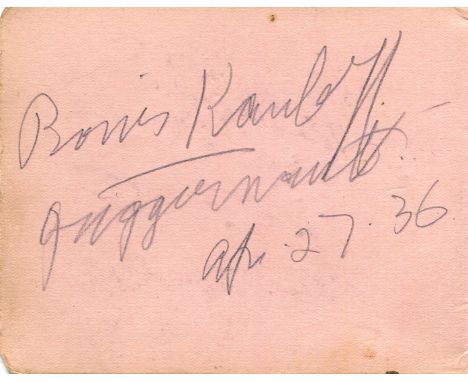 Boris Karloff
Juggernaut.
Apr. 27. 36